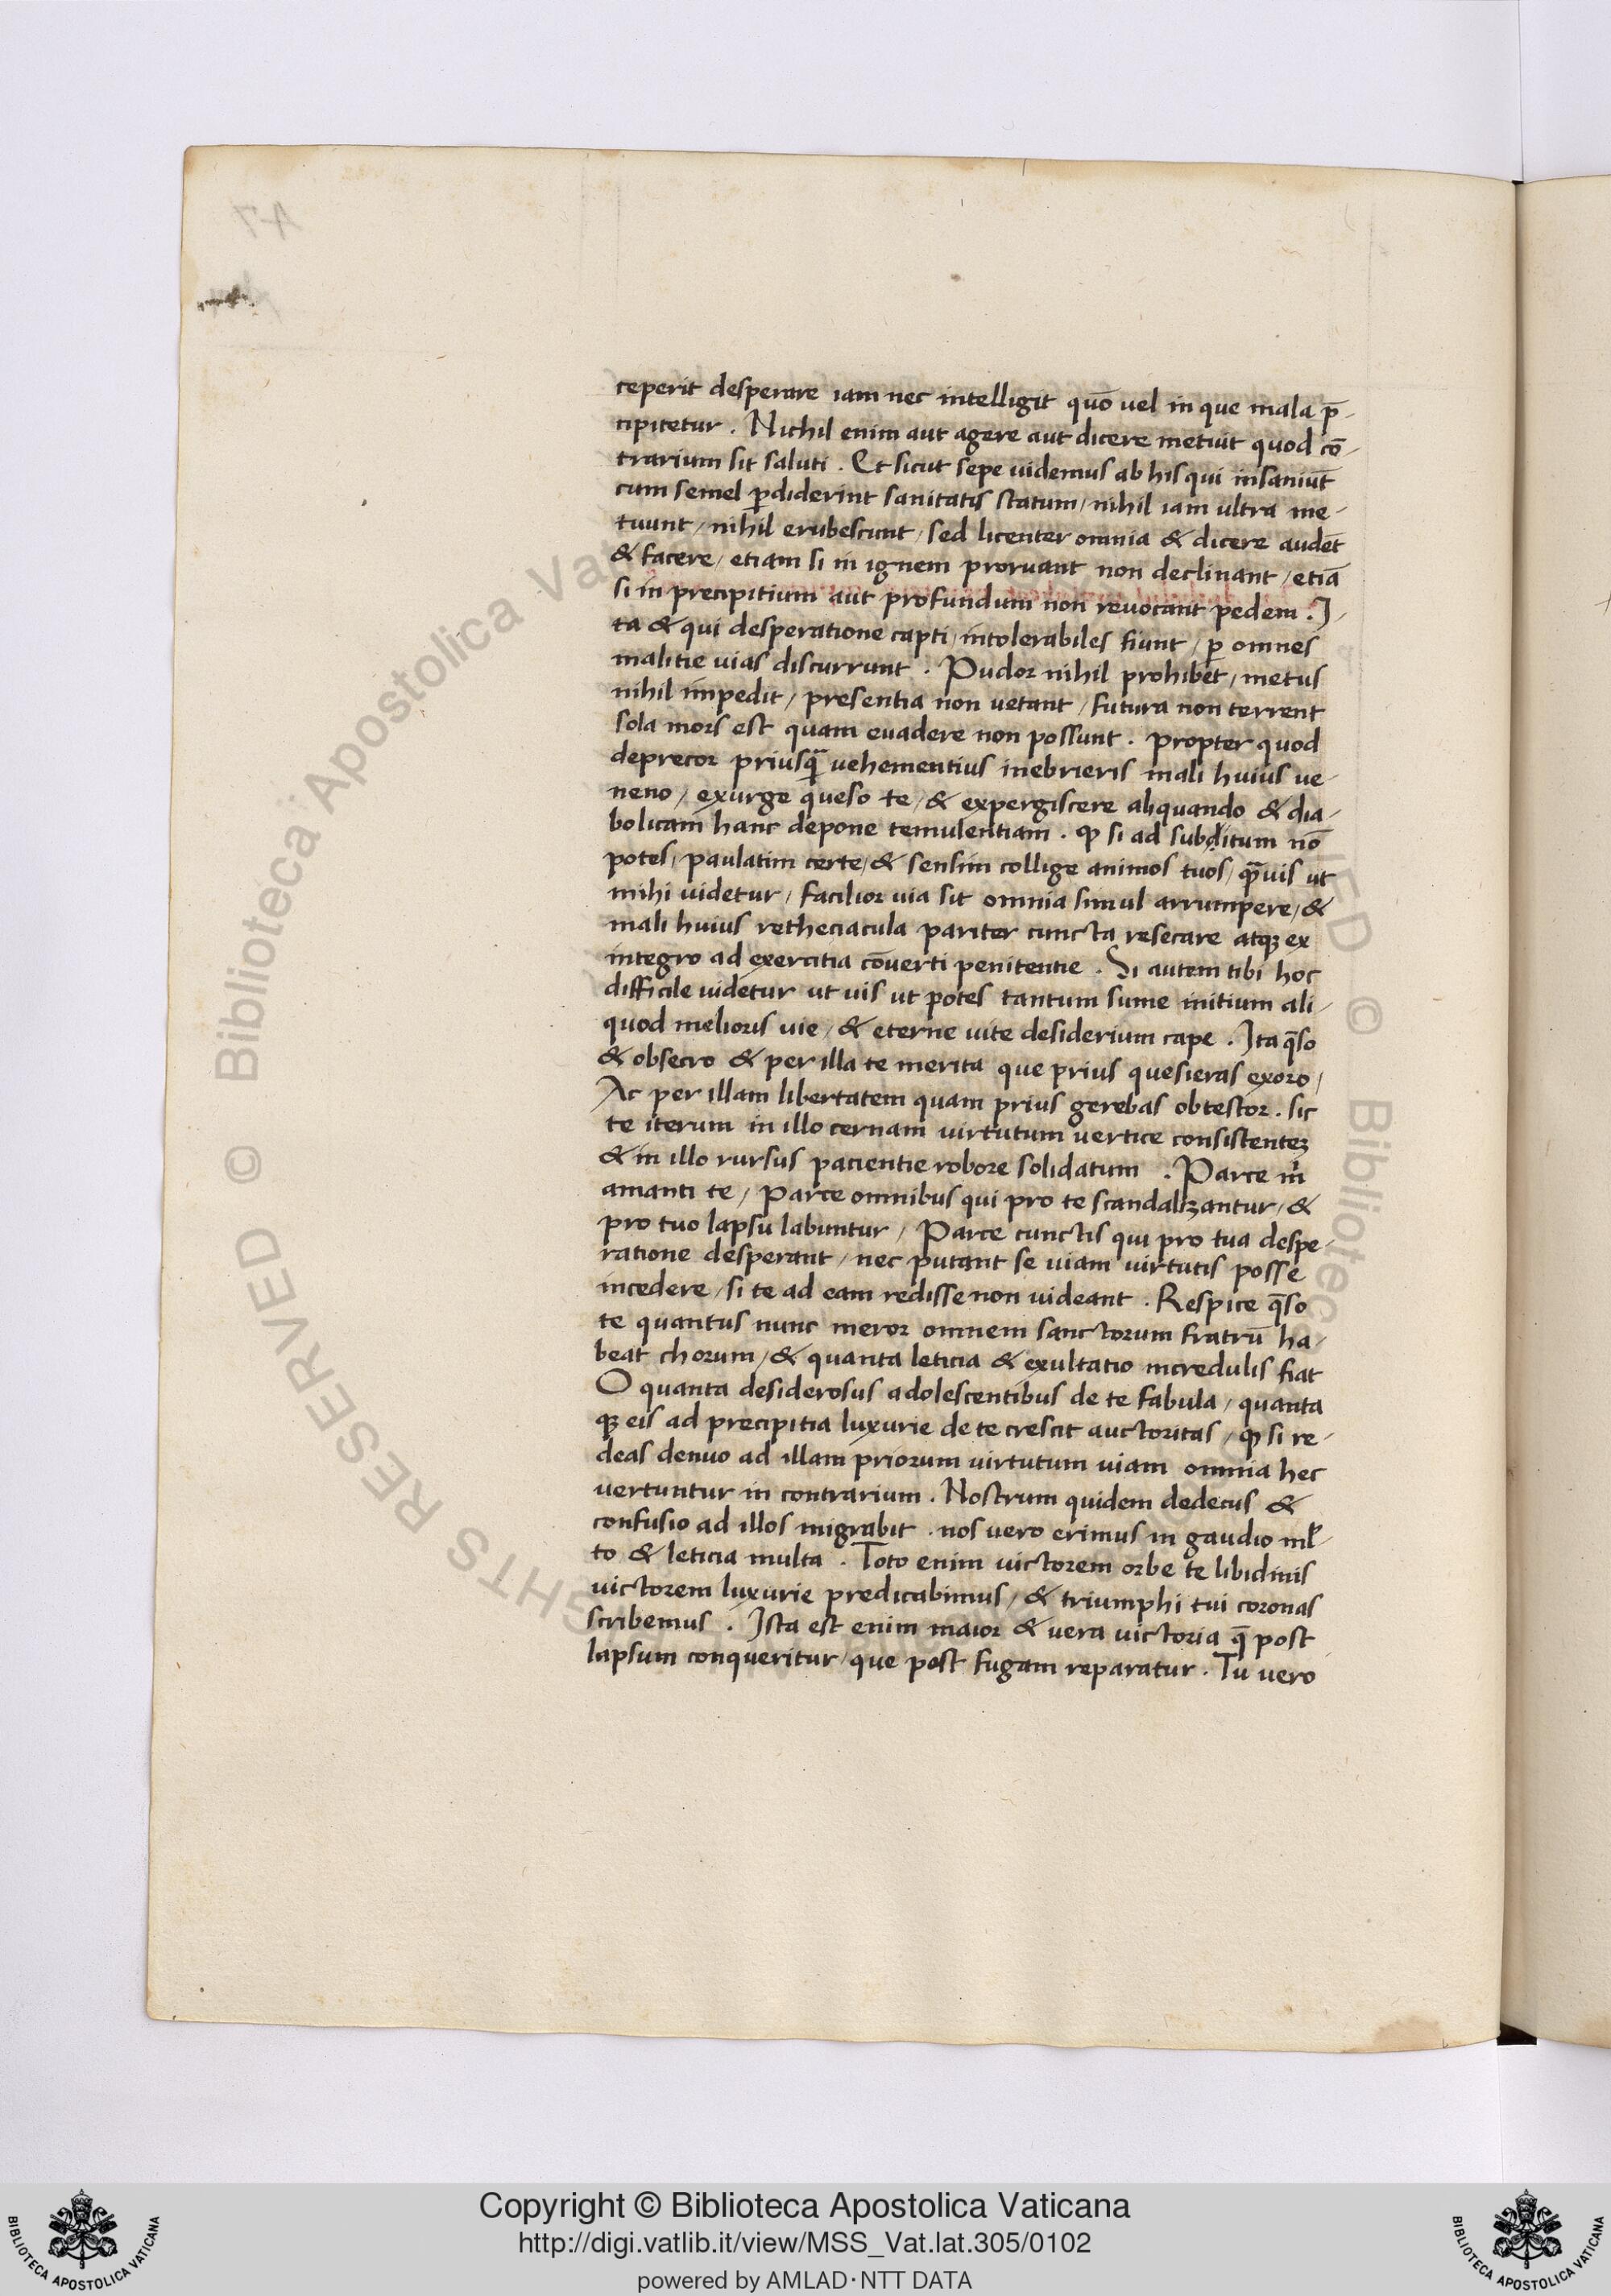 ceperit desperare iam nec intelligit quō vel in que mala p̄-
cipitetur . Nichil enim aut agere aut dicere metuit quod cō-
trarium sit saluti . Et sicut sepe videmus ab his qui insaniūt
cum semel ꝑdiderint sanitatis statum / nihil iam ultra me-
tuunt / nihil erubescunt / sed licenter omnia & dicere audēt
& facere / etiam si in ignem proruant non declinant / etiā
si in precipitium aut profundum non revocant pedem . I-
ta & qui desperatione capti / intolerabiles fiunt / ꝑ omnes
malitie vias discurrunt . Pudor nihil prohibet / metus
nihil impedit / presentia non vetant / futura non terrent
sola mors est quam evadere non possunt . propter quod
deprecor priusq̄ vehementius inebrieris mali huius ve-
neno / exurge queso te / & expergiscere aliquando & dia-
bolicam hanc depone temulentiam . ꝙ si ad subditum nō
potes / paulatim certe / & sensim collige animos tuos / q̄vis ut
mihi videtur / facilior via sit omnia simul arrumpere / &
mali huius retheciacula pariter cuncta resecare atqꝫ ex
integro ad exercitia cōverti penitentie . Si autem tibi hoc
difficile videtur ut vis ut potes tantum sume initium ali-
quod melioris vie / & eterne vite desiderium cape . Ita q̄so
& obsecro & per illa te merita que prius quesieras exoro /
Ac per illam libertatem quam prius gerebas obtestor . sic
te iterum in illo cernam virtutum vertice consistenteꝫ
& in illo rursus pacientie robore solidatum . Parce m̄
amanti te / Parce omnibus qui pro te scandalizantur / &
pro tuo lapsu labuntur / Parce cunctis qui pro tua despe-
ratione desperant / nec putant se viam virtutis posse
incedere / si te ad eam redisse non videant . Respice q̄so
te quantus nunc meror omnem sanctorum fratrū ha-
beat chorum / & quanta leticia & exultatio incredulis fiat
O quanta desiderosus adolescentibus de te fabula / quanta
qꝫ eis ad precipitia luxurie de te crescit auctoritas / ꝙ si re-
deas denuo ad illam priorum virtutum viam omnia hec
vertuntur in contrarium . Nostrum quidem dedecus &
confusio ad illos migrabit . nos vero erimus in gaudio ml̄-
to & leticia multa . Toto enim victorem orbe te libidinis
victorem luxurie predicabimus / & triumphi tui coronas
scribemus . Ista est enim maior & vera victoria q̄ post
lapsum conqueritur / que post fugam reparatur . Tu vero
Copyright © Biblioteca Apostolica Vaticana
http://digi.vatlib.it/view/MSS_Vat.lat.305/0102
powered by AMLAD·NTT DATA